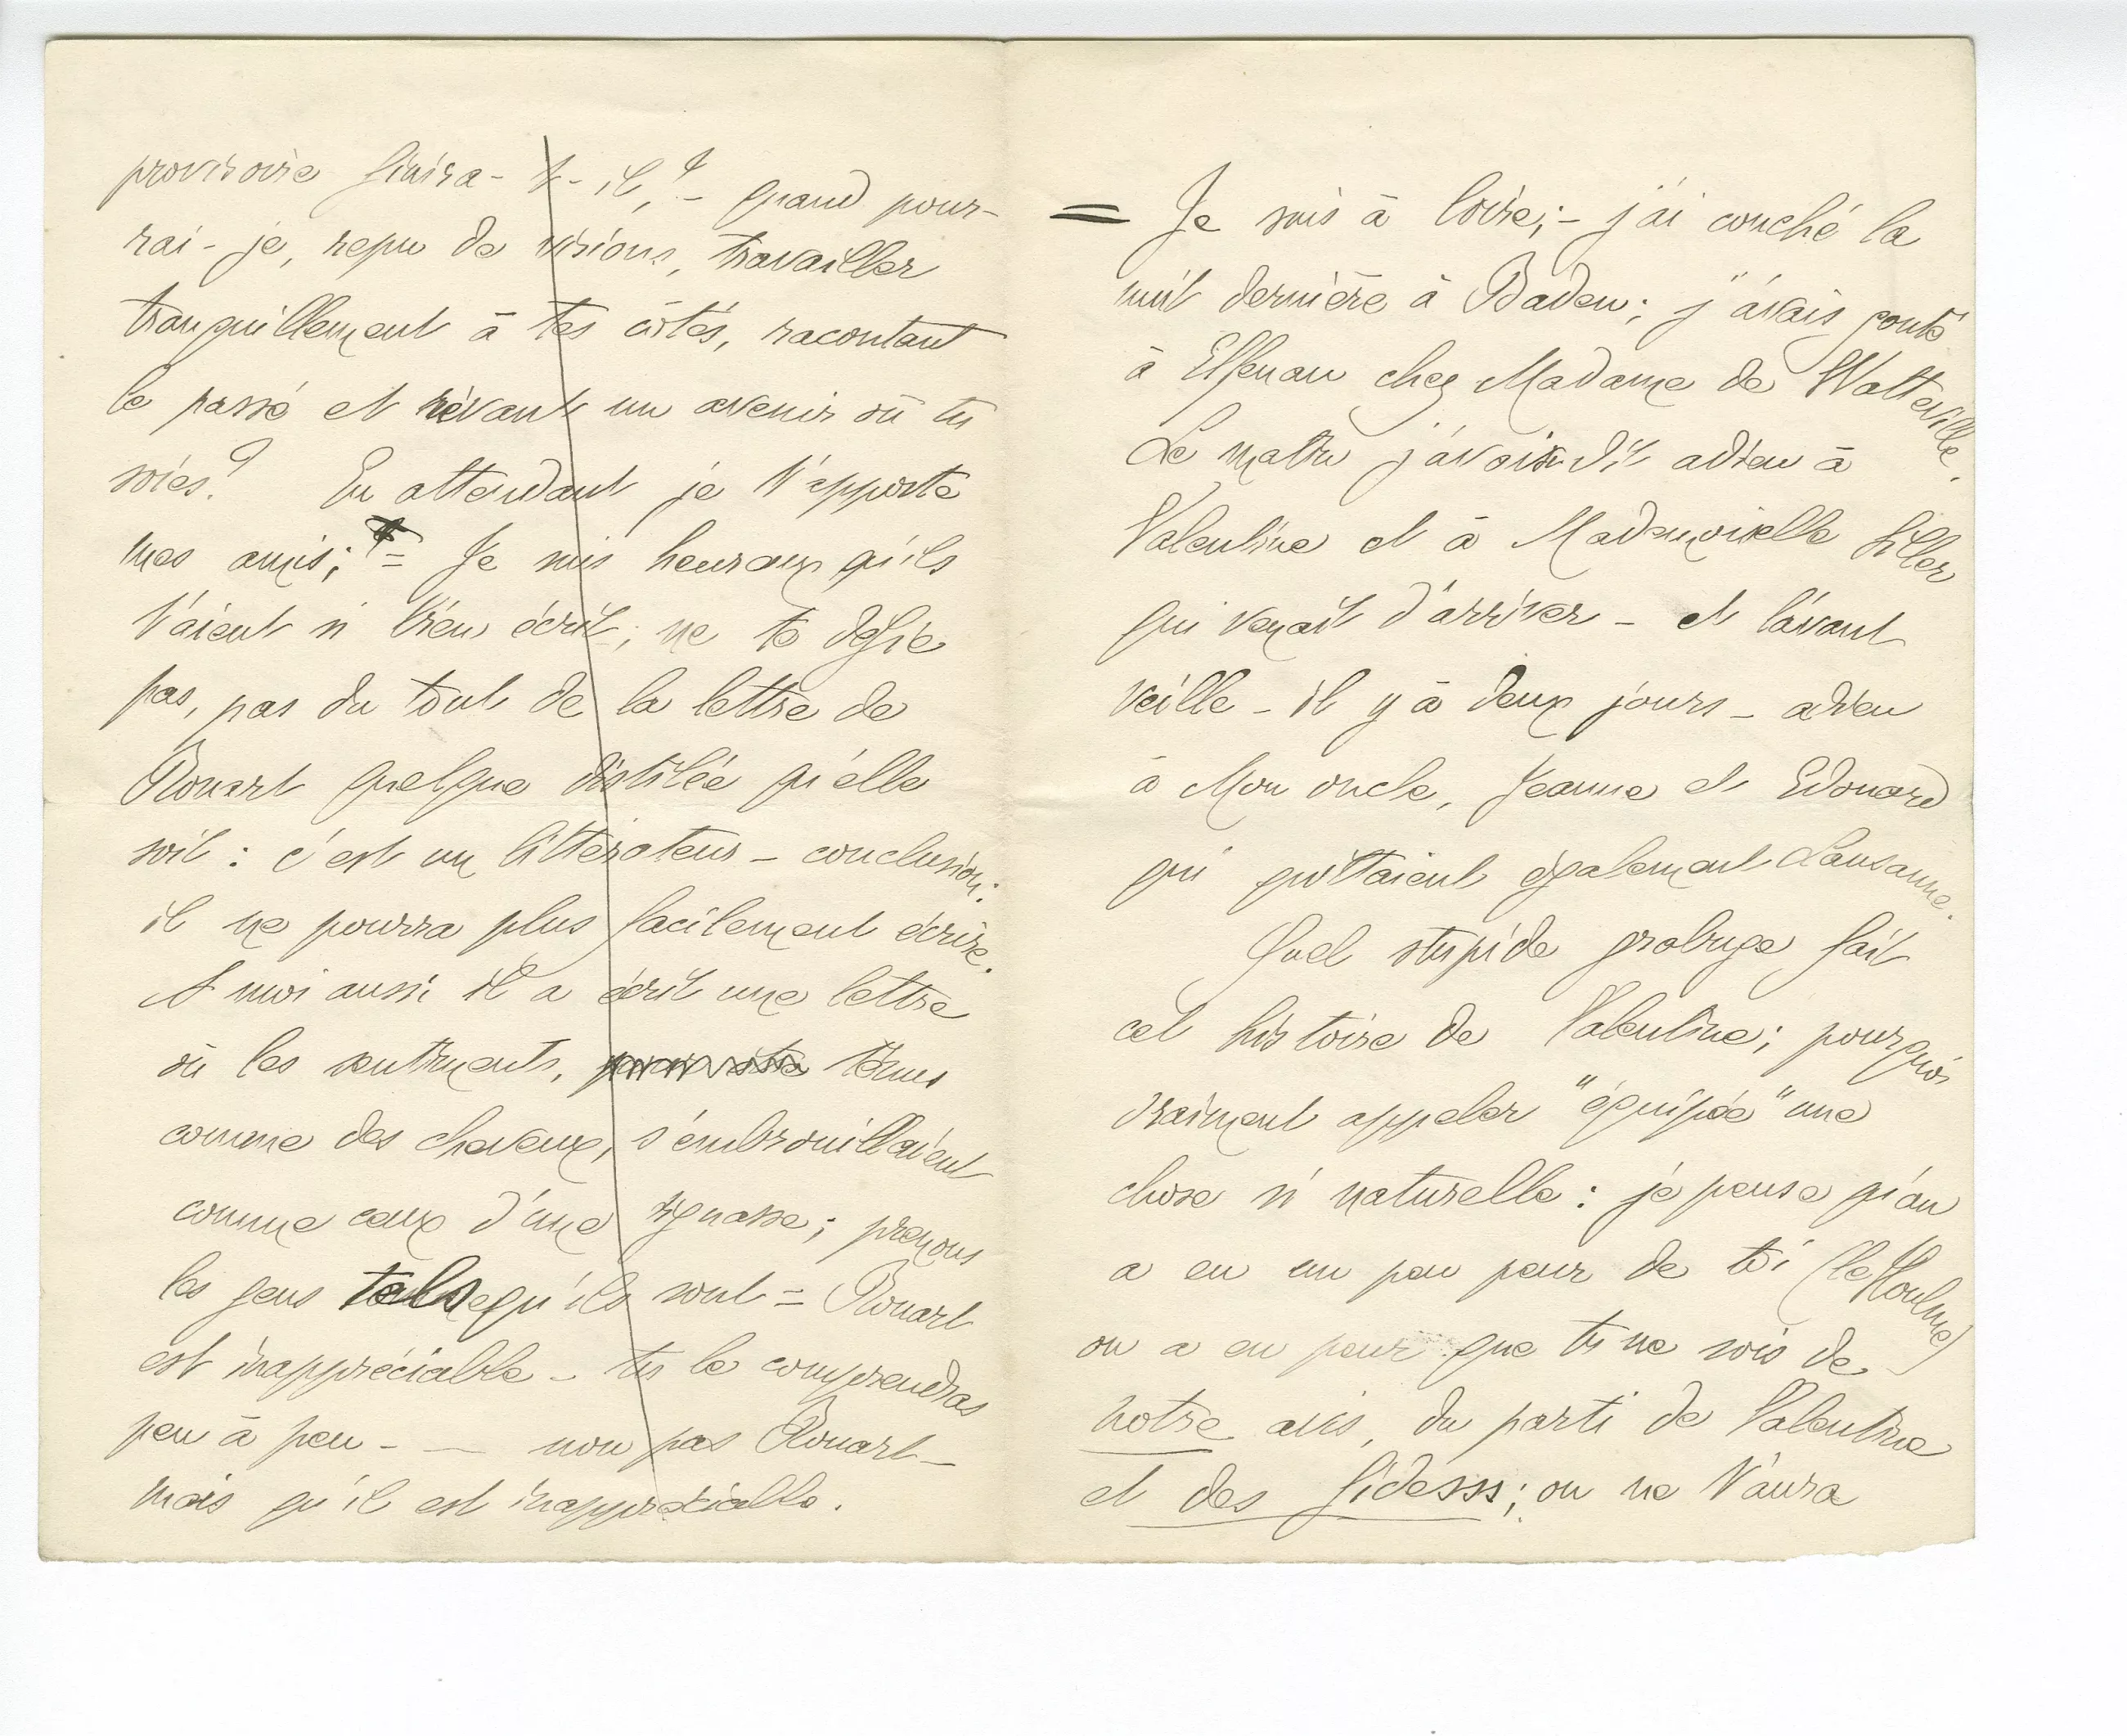 provisoire finira-t-il,? – quand pour-
rai-je, repu de visions, travailler
tranquillement à tes côtés, racontant
le passé et rêvant un avenir où tu
soies? En attendant je t'apporte
mes amis; = Je suis heureux qu'ils
t'aient si bien écrit; ne te défie
pas, pas du tout de la lettre de
Rouart quelque distilée qu'elle
soit : c'est un littérateur – conclusion:
il ne pourra plus facilement écrire.
A moi aussi il a écrit une lettre
où les sentiments, ténus
comme des cheveux, s'embrouillaient
comme ceux d'une tignasse; prenons
les gens tels qu'ils sont = Rouart
est inappréciable – tu le comprendras
peu à peu – — non pas Rouart –
mais qu'il est inappréciable.
= Je suis à ; – j'ai couché la
nuit dernière à Baden; j'avais gouté
à Elfenau chez Madame de Watteville.
Le matin j'avais dit adieu à
Valentine et à Mademoiselle Siller
qui venait d'arriver – et l'avant
veille – il y a deux jours – adieu
à Mon oncle, Jeanne et Edouard
qui quittaient également Lausanne.
Quel stupide grabuge fait
cet histoire de Valentine; pourquoi
vraiment appeler "équipée" une
chose si naturelle : je pense qu'on
a eu un peu peur de toi (le Houlme)
on a eu peur que tu ne sois de
notre avis, du parti de Valentine
et des ; on ne t'aura